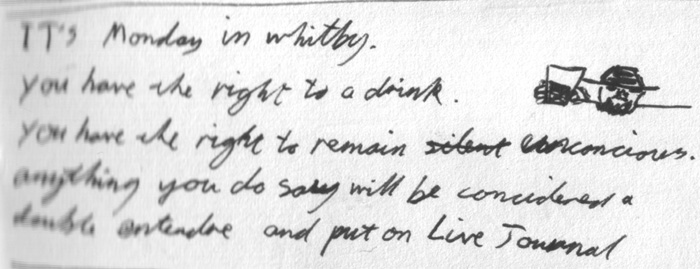 IT's Monday in whitby.
you have the right to a drink.
you have the right to remain silent unconcious.
anything you do say will be concidered a
double entendre and put on Live Journal